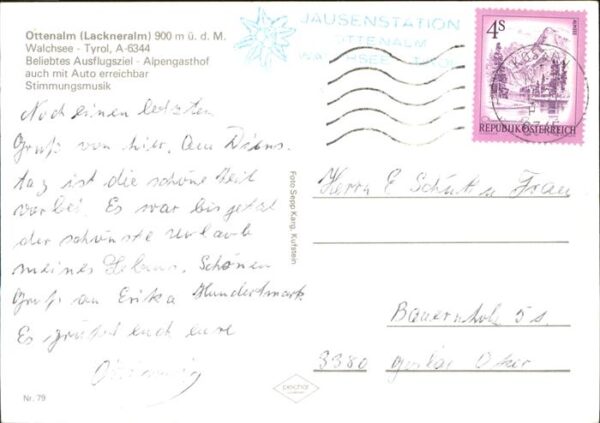 Ottenalm (Lackneralm) 900 m ü. d. M.
Walchsee - Tyrol, A-6344
Beliebtes Ausflugsziel - Alpengasthof
auch mit Auto erreichbar
Stimmungsmusik
JAUSENSTATION
OTTENALM
4S
REPUBLIK ÖSTERREICH
Noch einen letzten
Gruß von hier. Am Diens-
tag ist die schöne Zeit
vorbei. Es war bis jetzt
der schönste Urlaub
meines Lebens. Schönen
Gruß an Erika Hundertmark
Es grüßt euch eure
Herrn E Schut u Frau
Bauernholz 5 s.
3380 Goslar Oker
Foto Sepp Karg, Kufstein
Nr. 79